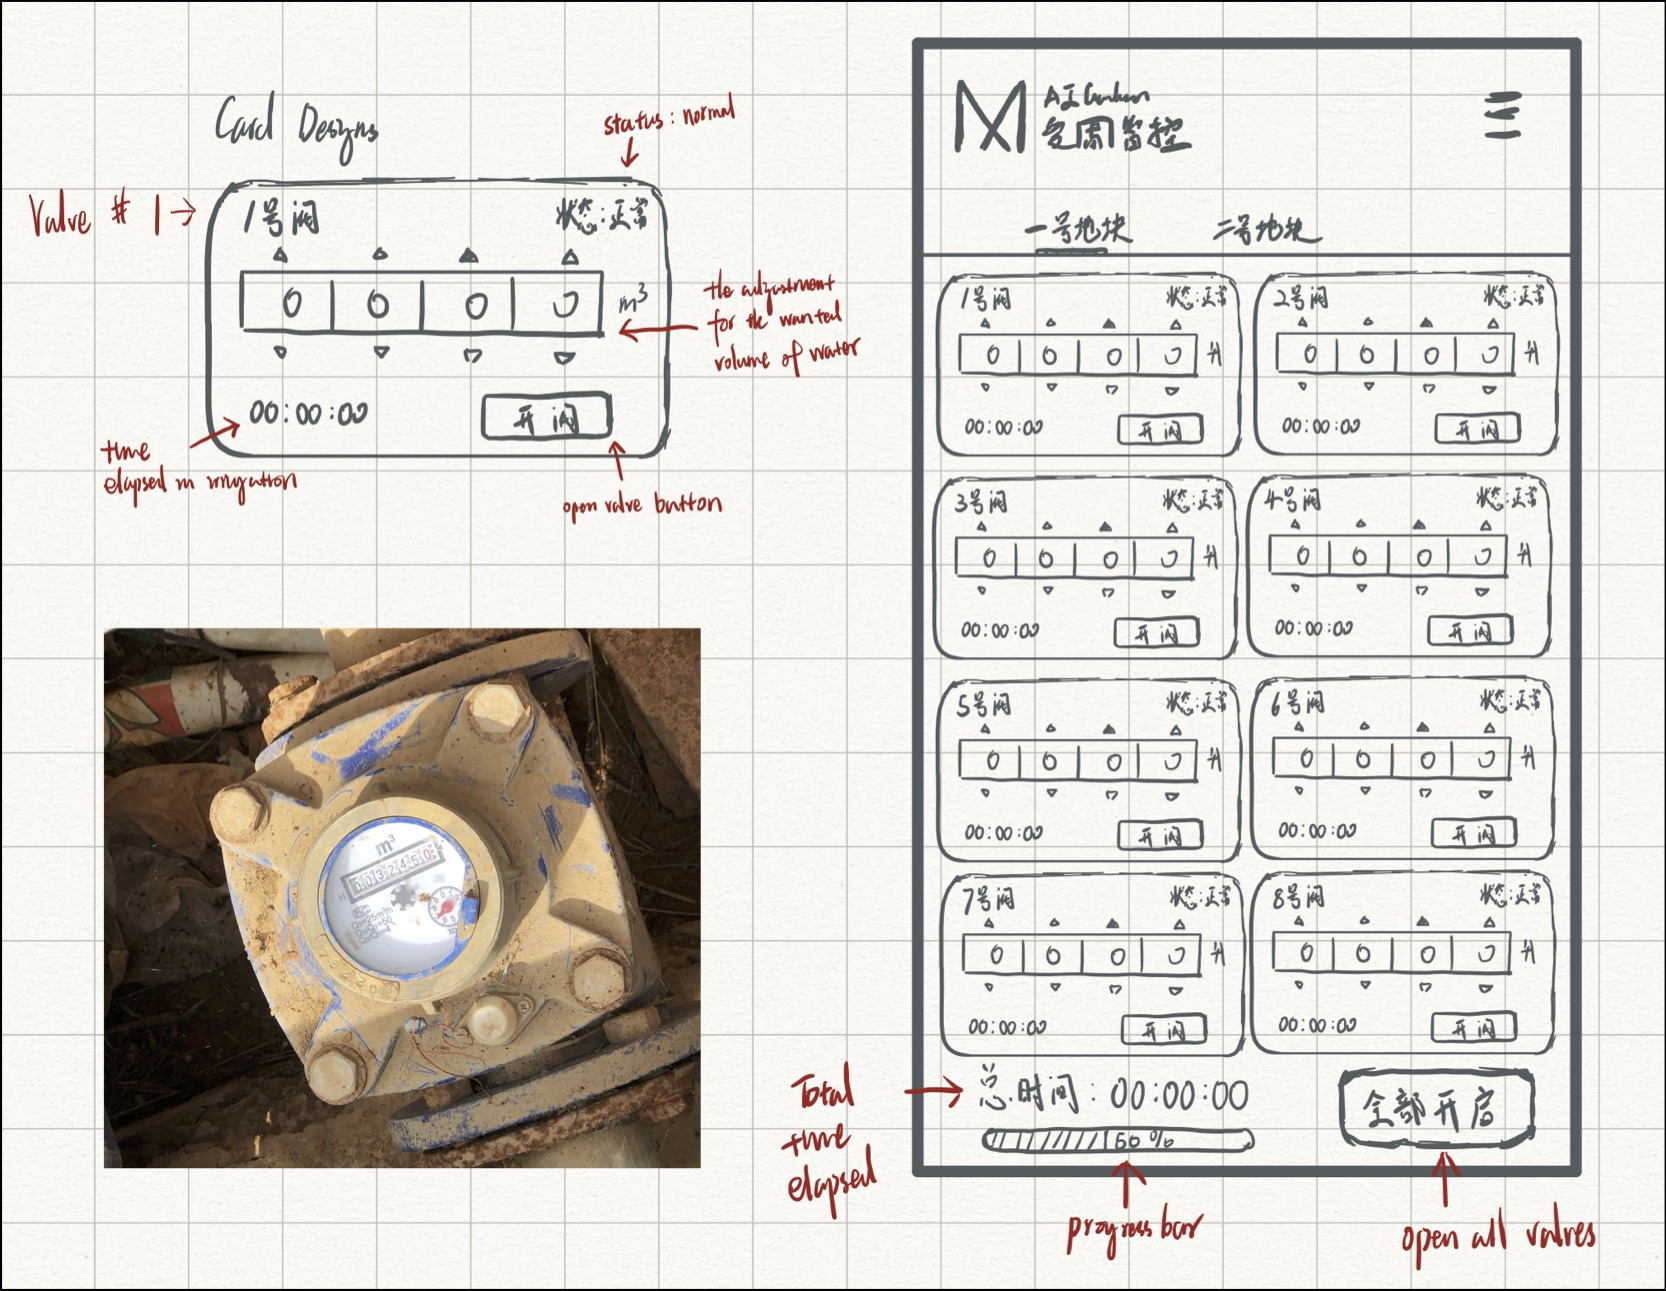 Card Designs
status: normal
Valve # 1
1号阀
状态:正常
0 0 0 0 m³
the adjustment
for the wanted
volume of water
00:00:00
开阀
time
elapsed in irrigation
open valve button
m³
0032450
AI Garden
监控
一号地块
二号地块
1号阀 状态:正常
0 0 0 0 升
00:00:00 开阀
2号阀 状态:正常
0 0 0 0 升
00:00:00 开阀
3号阀 状态:正常
0 0 0 0 升
00:00:00 开阀
4号阀 状态:正常
0 0 0 0 升
00:00:00 开阀
5号阀 状态:正常
0 0 0 0 升
00:00:00 开阀
6号阀 状态:正常
0 0 0 0 升
00:00:00 开阀
7号阀 状态:正常
0 0 0 0 升
00:00:00 开阀
8号阀 状态:正常
0 0 0 0 升
00:00:00 开阀
Total
time
elapsed
总时间:00:00:00
全部开启
60%
progress bar
open all valves